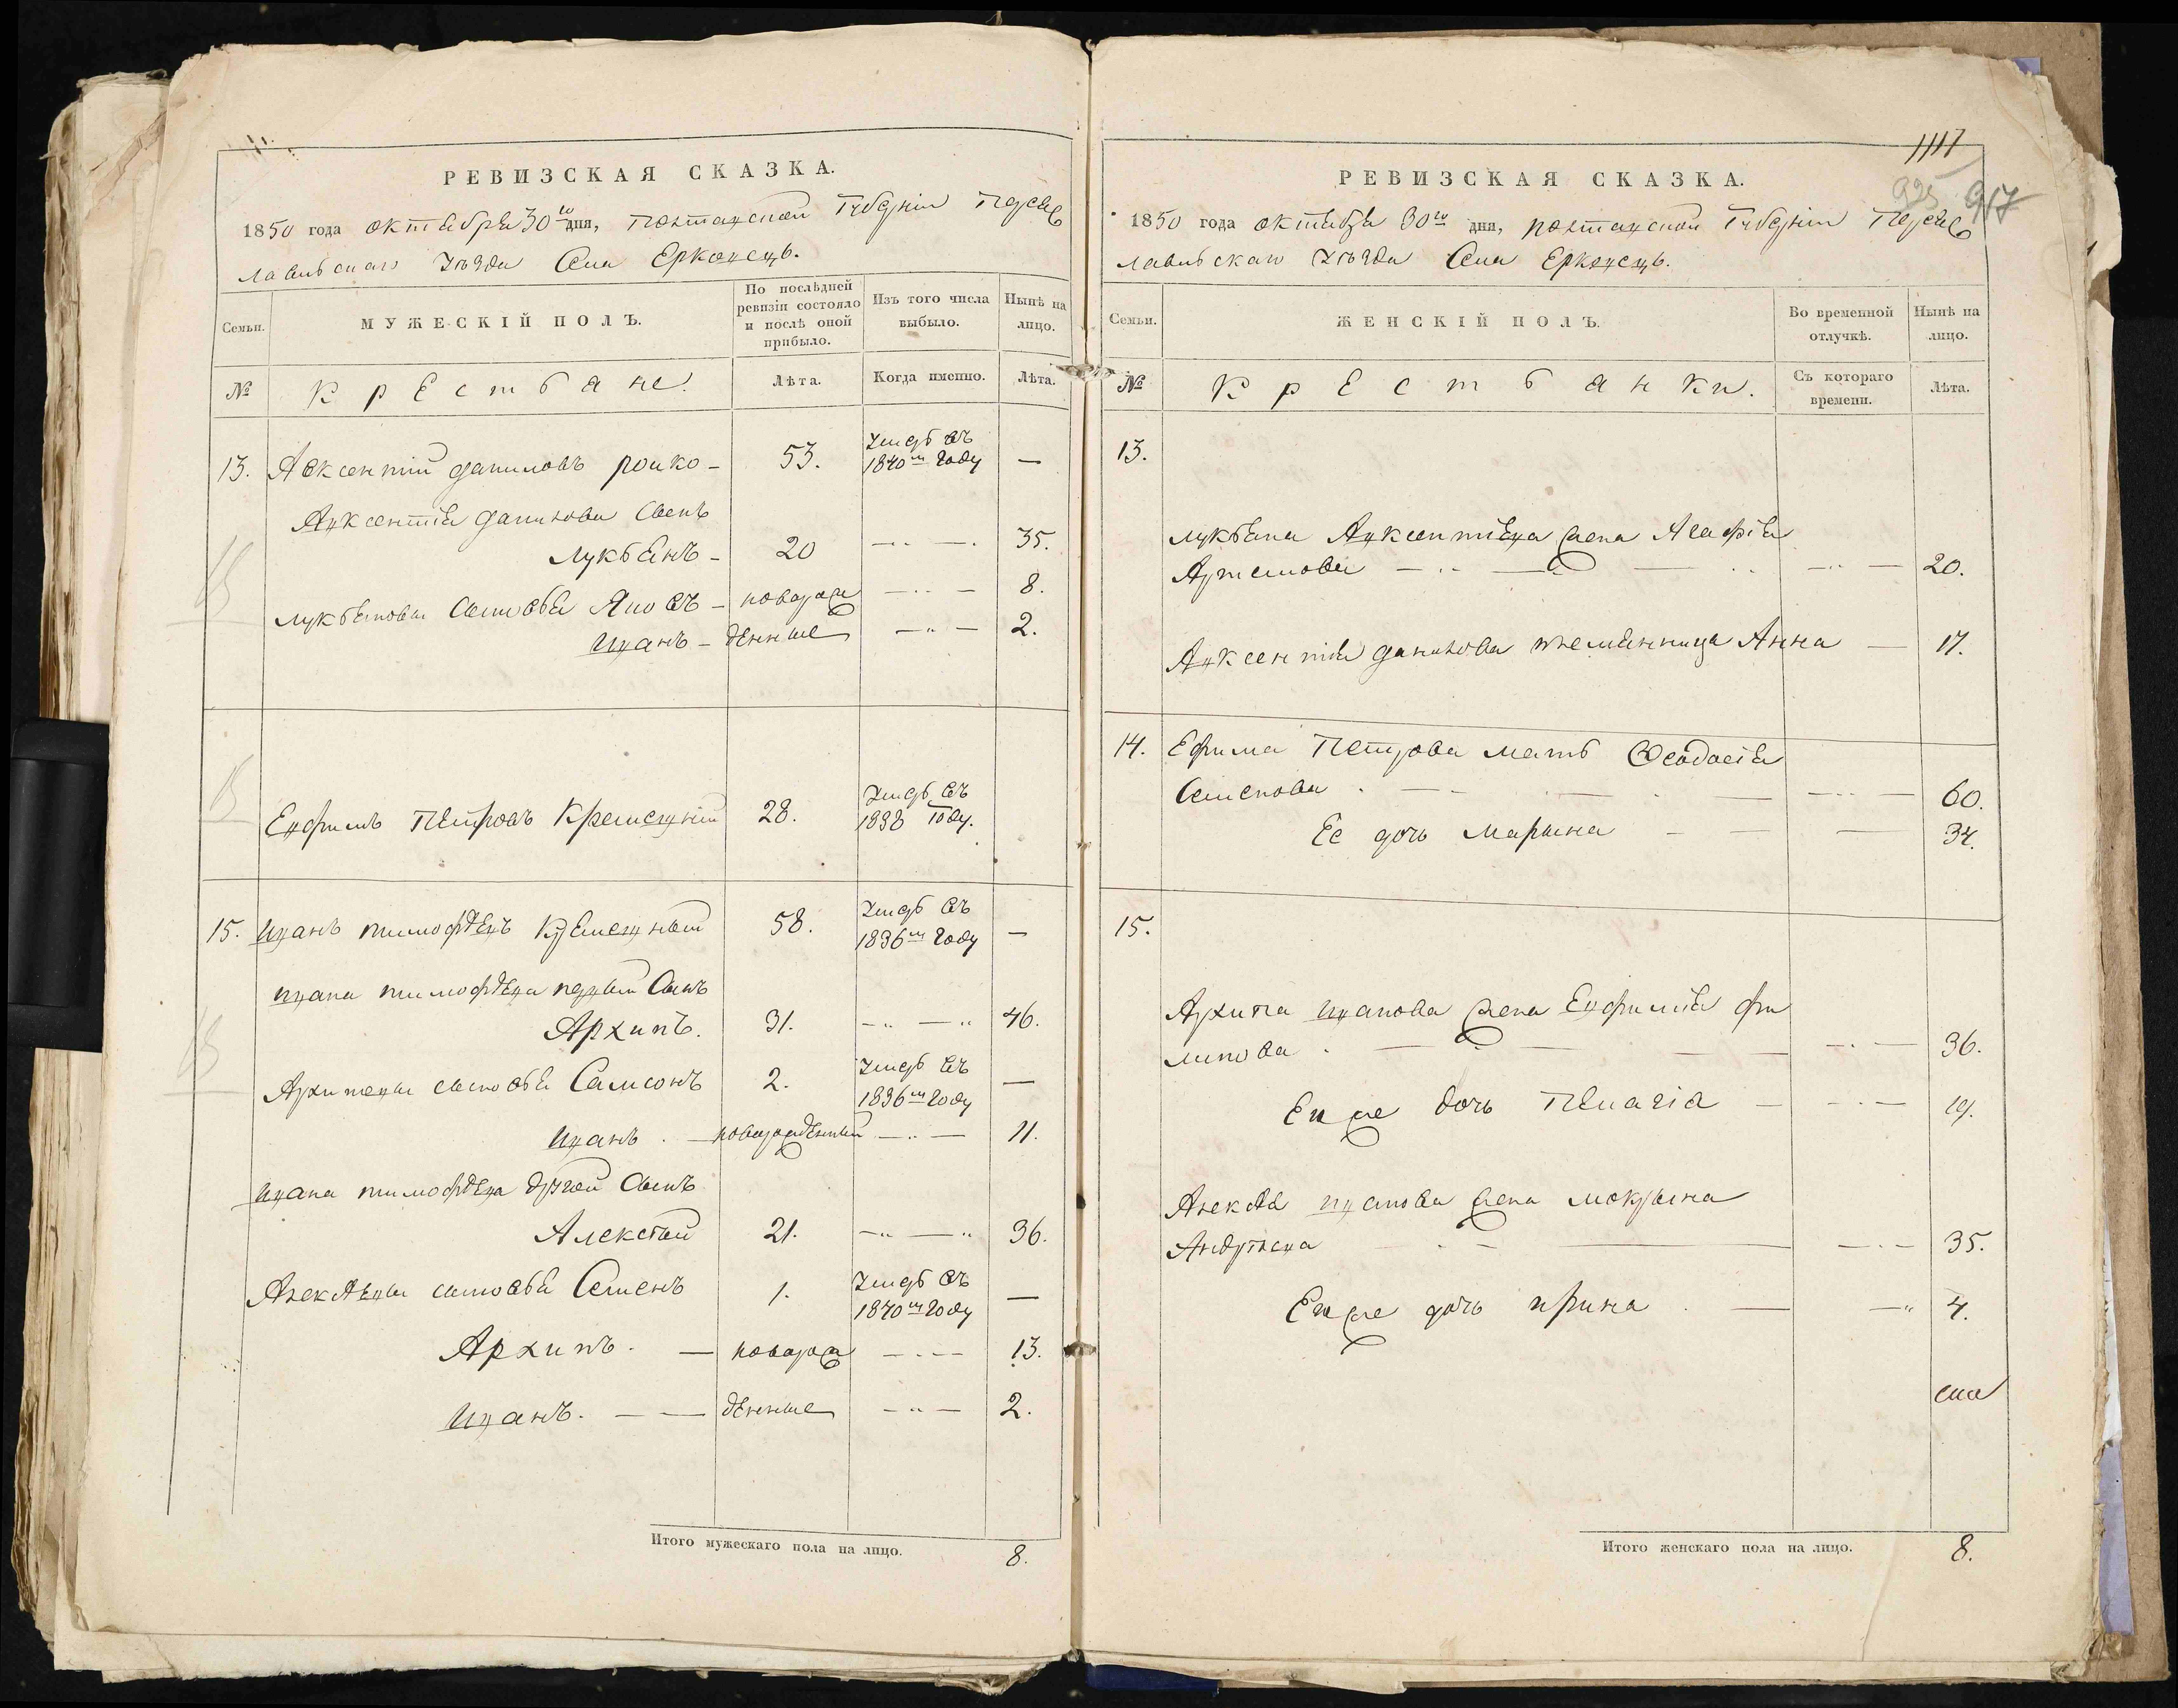 РЕВИЗСКАЯ СКАЗКА.
1850 года октября 30го дня, Полтавской Губерніи Переяс
лавльскаго Уѣзда Села Ерковецъ.
Семьи.
МУЖЕСКІЙ ПОЛЪ.
По послѣдней ревизіи состояло и послѣ оной прибыло.
Изъ того числа выбыло.
Нынѣ на лицо.
№
Крестьяне.
Лѣта.
Когда именно.
Лѣта.
13. Авксентій Даниловъ 53. Умеръ въ 1840м году —
Авксентія Данилова сынъ
Лукьянъ - 20 — 35.
Лукьяновы сыновья Яковъ - новорож — 8.
Иванъ - денные — 2.
Евфимъ Петровъ Кремезный 28. Умеръ въ 1838 году.
15. Иванъ Тимофѣевъ Кремезный 58. Умеръ въ 1836м году —
Ивана Тимофѣева первый сынъ
Архипъ. 31. — 46.
Архиповы сыновья Самсонъ 2. Умеръ въ 1836м году —
Иванъ . — новорожденный — 11.
Ивана Тимофѣева другой сынъ
Алексѣй 21. — 36.
Алексѣевы сыновья Семенъ 1. Умеръ въ 1840м году —
Архипъ. — новорож — 13.
Иванъ. — денные — 2.
Итого мужескаго пола на лицо. 8.
1117
925 917
РЕВИЗСКАЯ СКАЗКА.
1850 года октября 30го дня, Полтавской Губерніи Переяс
лавльскаго Уѣзда Села Ерковецъ.
Семьи.
ЖЕНСКІЙ ПОЛЪ.
Во временной отлучкѣ.
Нынѣ на лицо.
№
Крестьянки.
Съ котораго времени.
Лѣта.
13.
Лукьяна Авксентіева жена Агафія
Артемова — 20.
Авксентія Данилова племянница Анна — 17.
14. Ефима Петрова мать Феодосія
Семенова . — 60.
Ее дочь Марына — 34.
15.
Архипа Иванова жена Евфимія Фи
липова . — 36.
Ея же дочь Пелагія — 19.
Алексѣя Иванова жена Мокрына
Андрѣева — 35.
Ея же дочь Ирина . — 4.
Итого женскаго пола на лицо. 8.